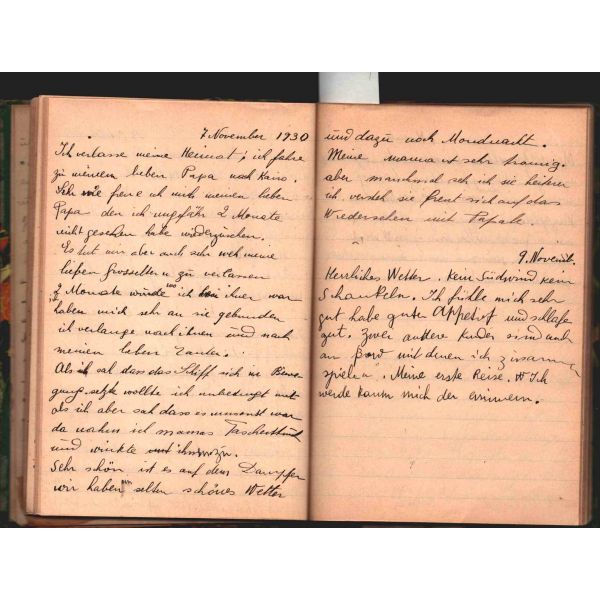 7 November 1930
Ich verlasse meine Heimat, ich fahre
zu meinem lieben Papa nach Kairo.
Sehr wie freue ich mich meinen lieben
Papa den ich ungefähr 2 Monate
nicht gesehen habe wiederzusehen.
Es tut mir aber auch sehr weh meine
lieben Grosseltern zu verlassen
2 Monate wo ich bei ihnen war
haben mich sehr an sie gebunden
ich verlange nach ihnen und nach
meinen lieben Tanten.
Als ich sah dass das Schiff sich in Bewe-
gung setzte wollte ich unbedingt
als ich aber sah dass es umsonst war
da nahm ich mamas Taschentuch
und winkte
Sehr schön ist es auf dem Dampfer
wir haben selten schönes Wetter
und dazu noch Mondnacht.
Meine mama ist sehr traurig.
aber manchmal seh ich sie heiterer
ich versteh sie freut sich auf das
Wiedersehen mit Papale.
9. Novemb.
Herrliches Wetter. Kein Südwind kein
Schaukeln. Ich fühle mich sehr
gut habe guten Appetit und schlafe
gut. Zwei andere Kinder sind
an Bord mit denen ich zusammen
spielen. Meine erste Reise. Ich
werde kaum mich der erinnern.